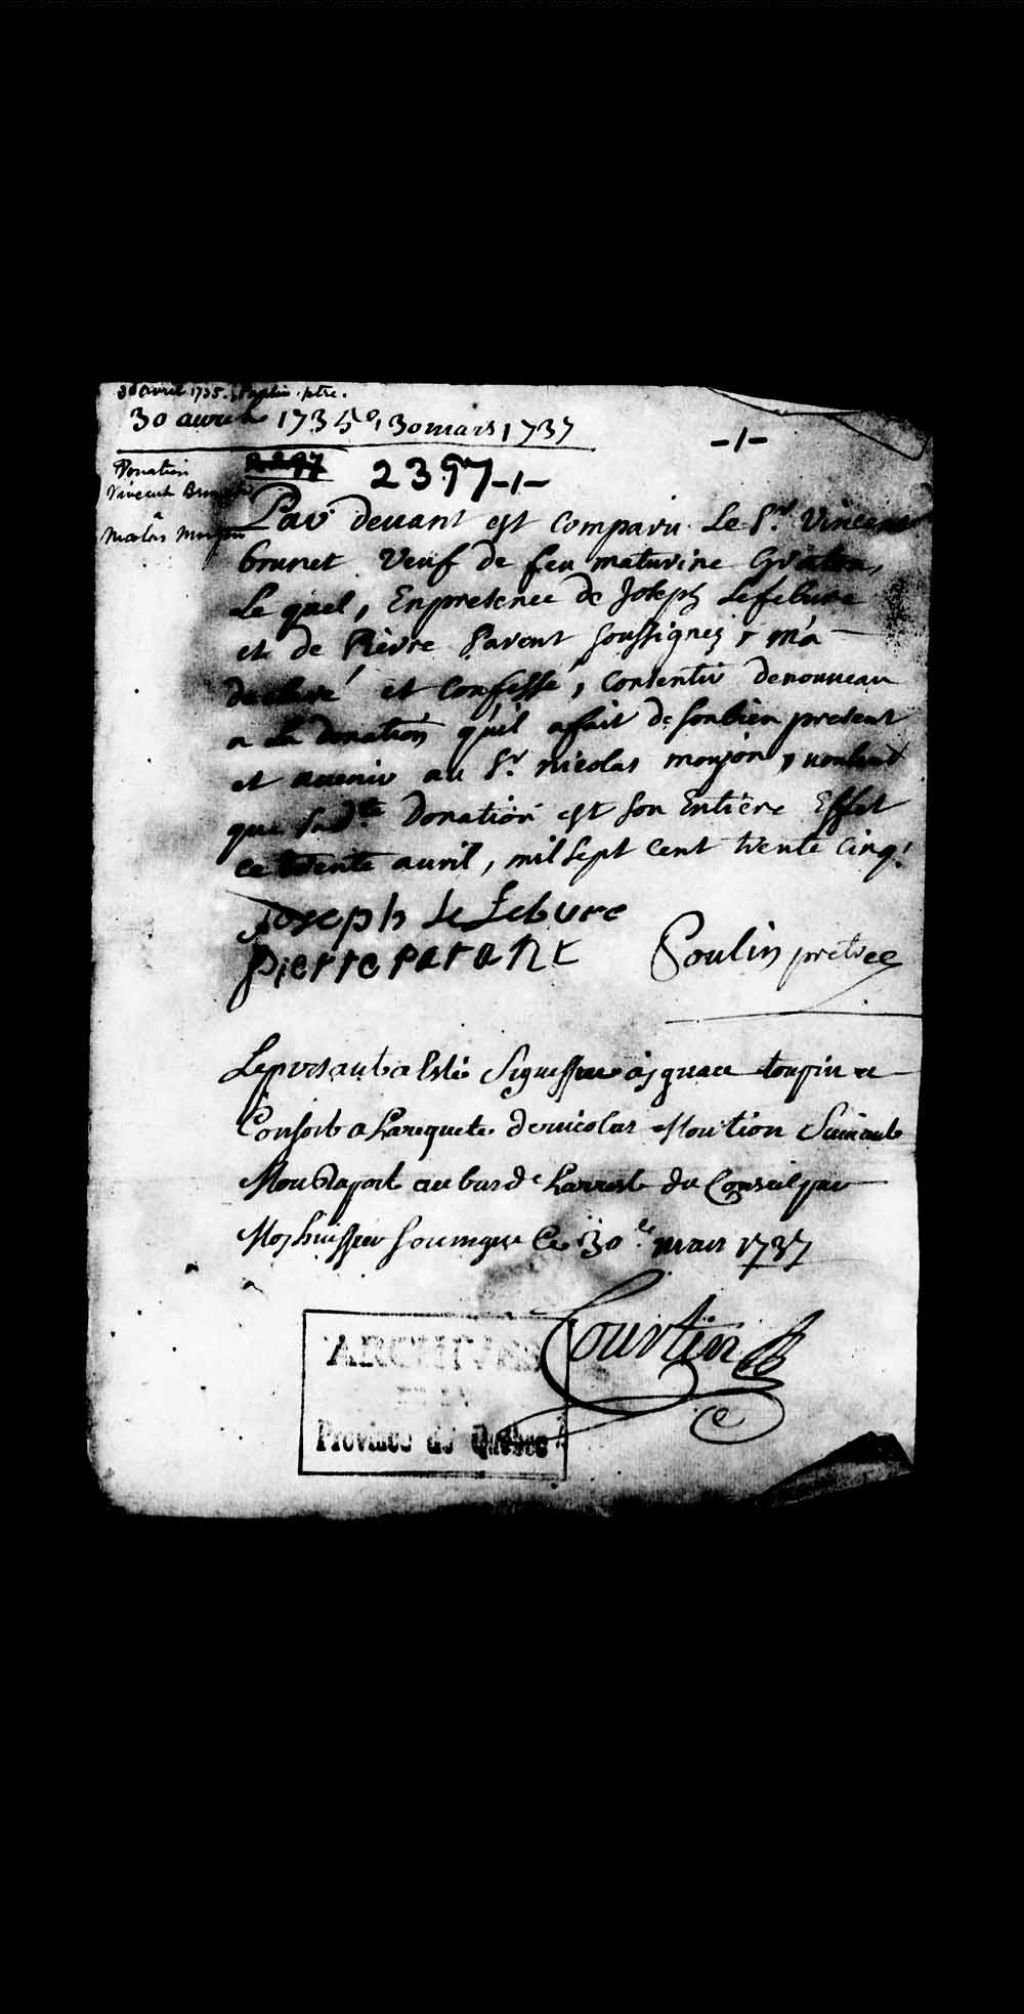 30 avril 1735. Poulin ptre.
30 avril 1735 30 mars 1737
-1-
Donation
2397
2397-1-
Vincent Brunet
à
Nicolas Moujon
Par deuant est comparu Le Sr. Vincent
brunet Veuf de feu maturine Graton,
Le quel, En presence de Joseph Lefebure
et de Pierre Parent soussignez, m'a
declaré et Confessé, Consentir denouueau
a La donation qu'il afait de son bien present
et auenir au Sr. nicolas moujon, voulant
que sad.te Donation est son Entiere Effet
ce trente auril, mil sept cent trente cinq.
Joseph le Febure
pierre parant
Poulin pretre
Lepresant a Esté Signiffier a ignace toupin et
Consort a Larequete denicolas Moution Suivant
Mon Raport au bas de Larrest du Conseil par
Moy huissier Soussigne Ce 30.e mars 1737
Courtin
ARCHIVES
DE LA
Province de Québec